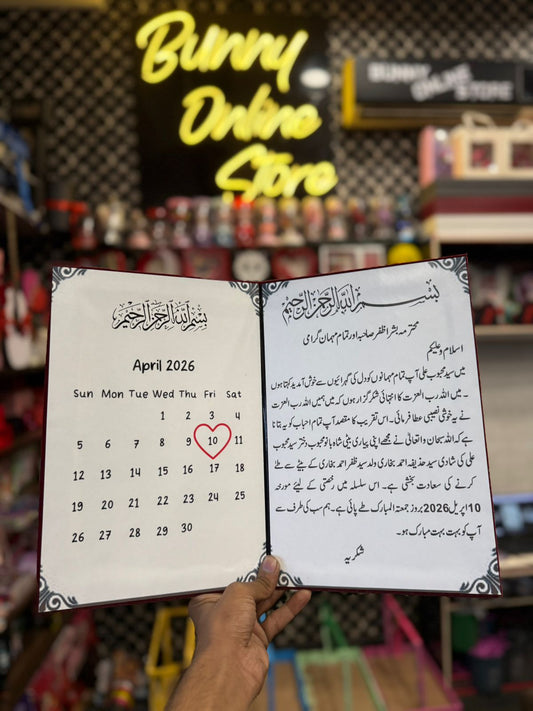 Bunny
Online
Store
BUNNY
ONLINE
STORE
بسم الله الرحمن الرحيم
April 2026
Sun Mon Tue Wed Thu Fri Sat
1 2 3 4
5 6 7 8 9 10 11
12 13 14 15 16 17 18
19 20 21 22 23 24 25
26 27 28 29 30
بسم الله الرحمن الرحيم
محترمہ بشرا ظفر صاحبہ اور تمام مہمان گرامی
اسلام و علیکم
میں سید محبوب علی آپ تمام مہمانوں کو دل کی گہرائیوں سے خوش آمدید کہتا ہوں
۔ میں اللہ رب العزت کا انتہائی شکر گزار ہوں کہ میں ہمیں اللہ رب العزت
نے یہ خوشی نصیبی عطا فرمائی۔ اس تقریب کا مقصد آپ تمام احباب کو یہ بتانا
ہے کہ اللہ سبحان و اتعالیٰ نے مجھے اپنی پیاری بیٹی شاہ بانو محبوب دختر سید محبوب
علی کی شادی سید حذیفہ احمد بخاری ولد سید ظفر احمد بخاری کے بیٹے سے طے
کرنے کی سعادت بخشی ہے۔ اس سلسلہ میں رخصتی کے لیئے مورخہ
10 اپریل 2026 بروز جمعتہ المبارک طے پائی ہے۔ ہم سب کی طرف سے
آپ کو بہت بہت مبارک ہو۔
شکریہ